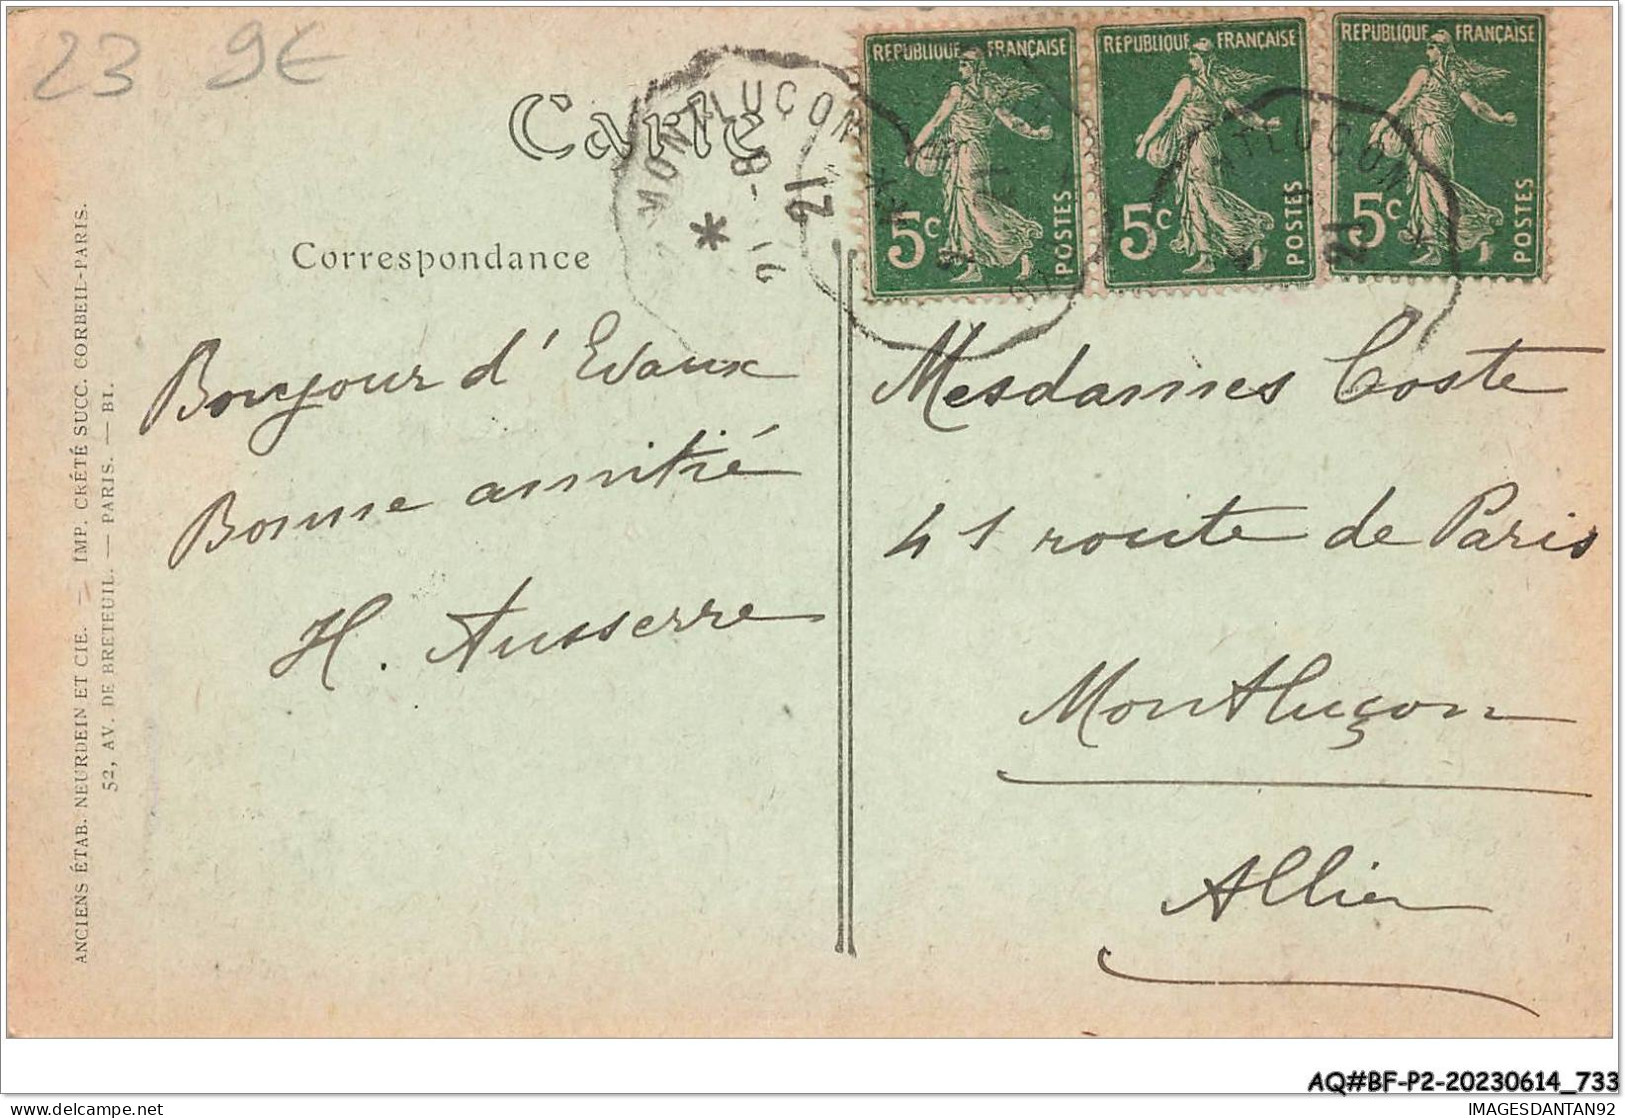 23 9€
Carte
RÉPUBLIQUE FRANÇAISE
5c POSTES
RÉPUBLIQUE FRANÇAISE
5c POSTES
RÉPUBLIQUE FRANÇAISE
5c POSTES
MONTLUÇON
21
Correspondance
Bonjour d'Evaux
Bonne amitié
H. Ausserre
Mesdames Coste
41 route de Paris
Montluçon
Allier
ANCIENS ÉTAB. NEURDEIN ET CIE. — IMP. CRÉTÉ SUCC. CORBEIL-PARIS.
52, AV. DE BRETEUIL. — PARIS. — BI.
AQ#BF-P2-20230614_733
delcampe.net
IMAGESDANTAN92